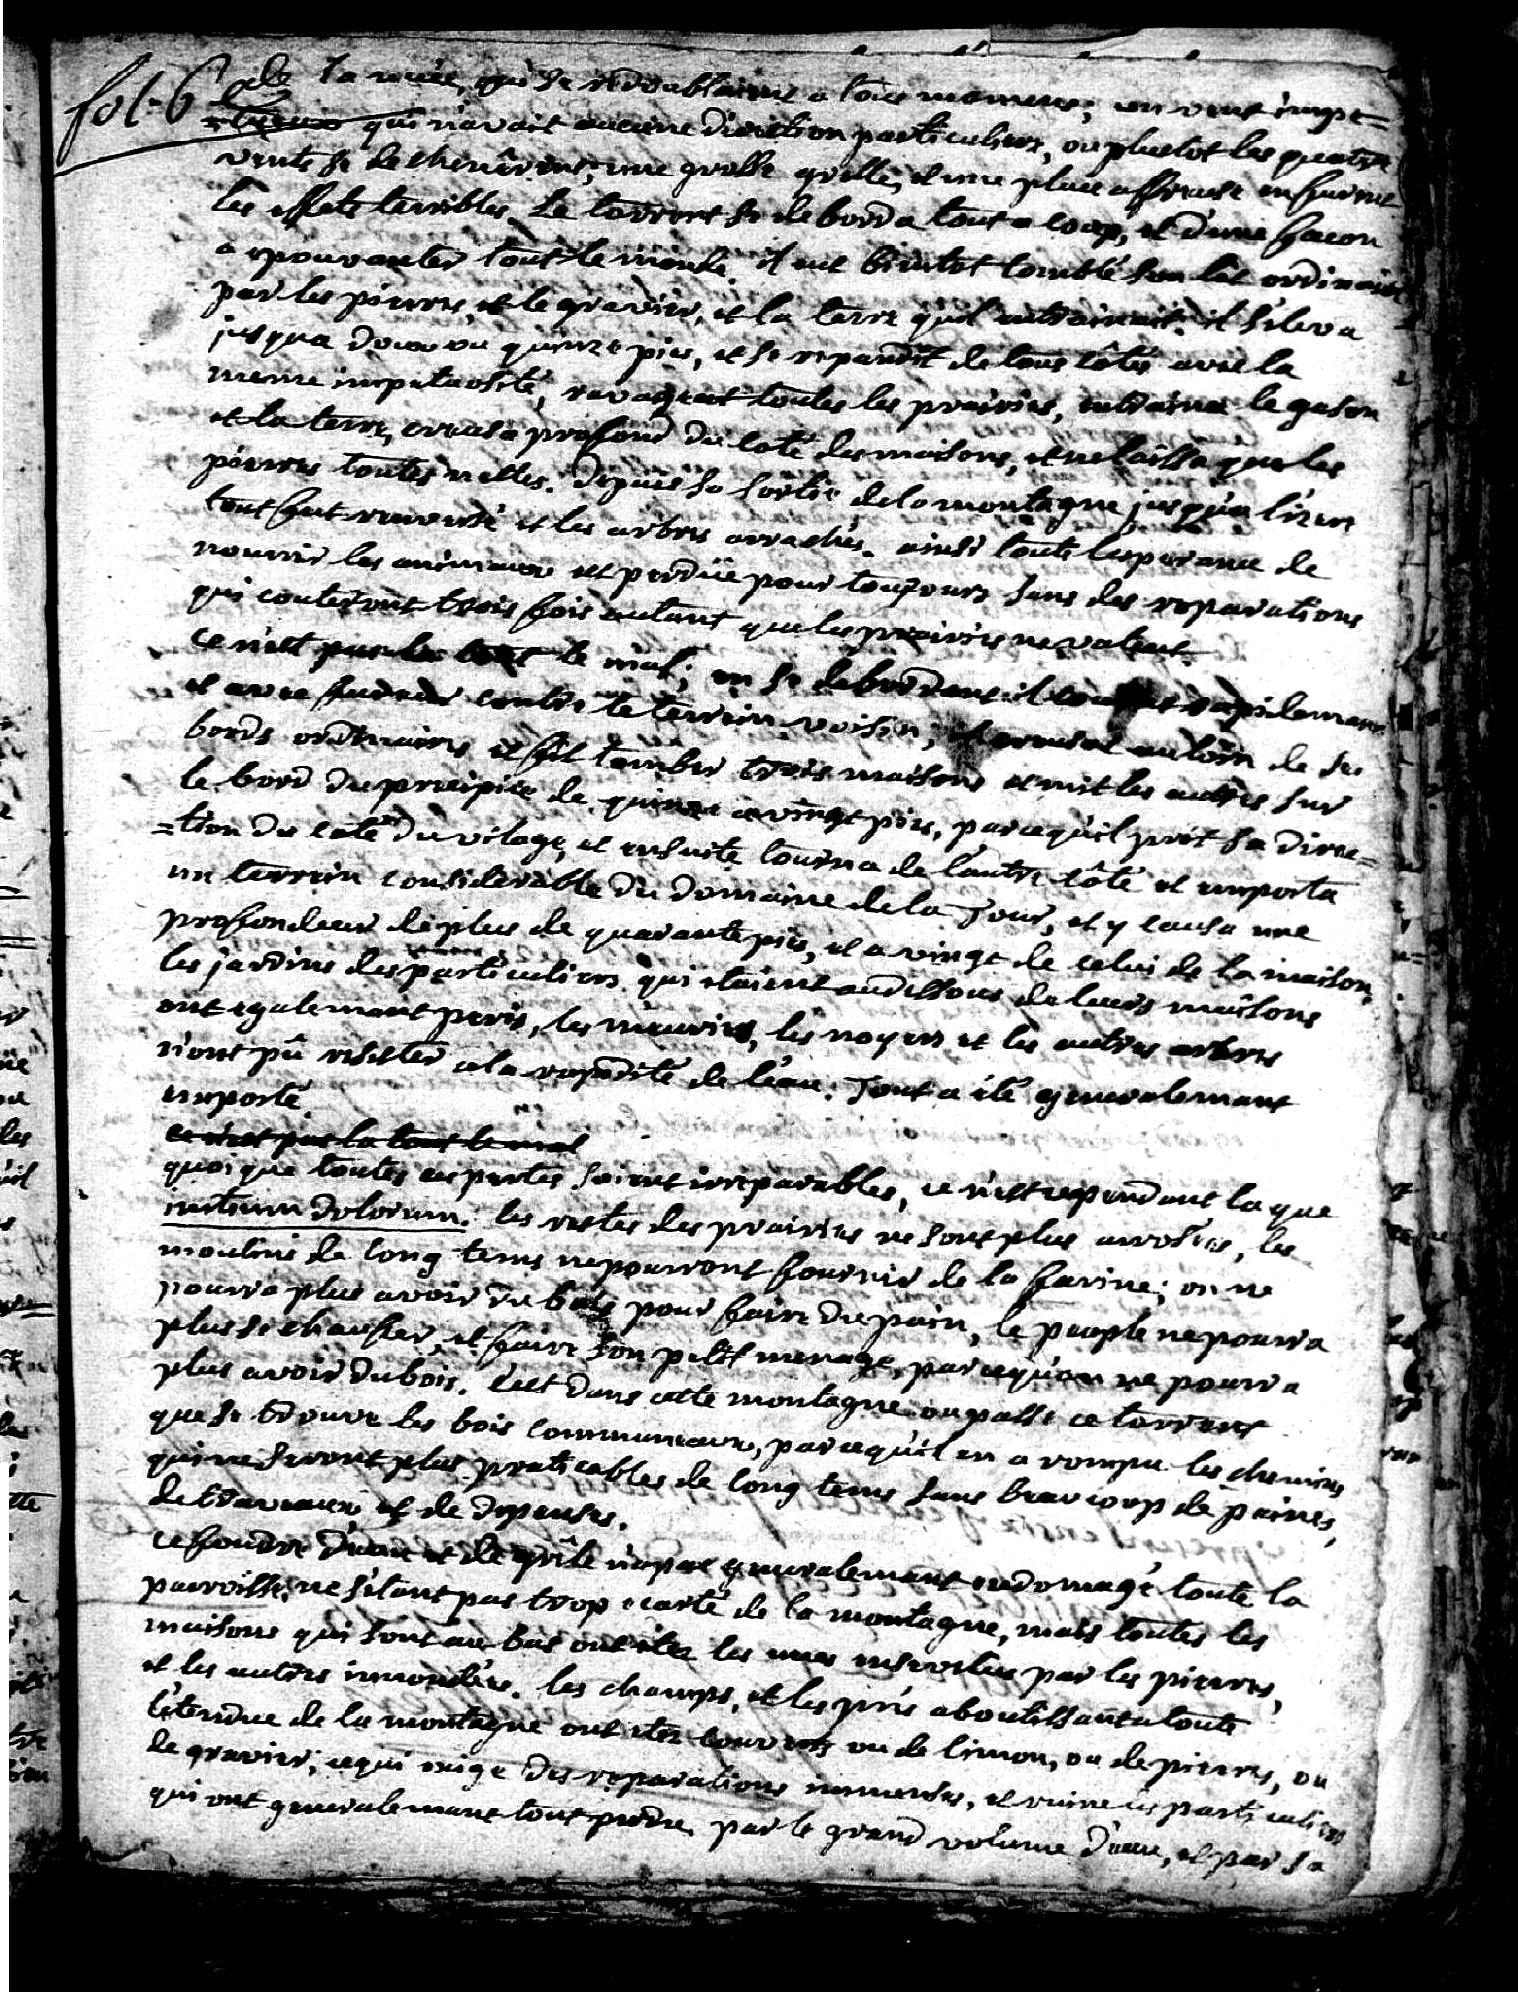 fol. 6
de la nuée, qui se redoublaient a tous momens; un vent impe=
=tueux qui n'avait aucune direction particuliere, ou plustot les quatre
vents se dechenêrent; une grosse grelle, et une pluie affreuse en furent
les effets terribles. Le torrent se deborda tout a coup, et d'une facon
a epouvanter tout le monde. il eut bientot comblé son lit ordinaire
par les pierres, et le gravier, et la terre qu'il entrainait. il s'eleva
jusqua douze ou quinze pies, et se repandit de tous côtés avec la
meme impetuosité, ravageat toutes les prairies, entraina le gason
et la terre, creusa profond du coté des maisons, et ne laissa que les
pierres toutes nettes. Depuis sa sortie de la montagne jusqu'a lizere
tout fut renversé et les arbres arrachés. ainsi toute l'esperance de
nourrir les animaux est perdüe pour toujours sans des reparations
qui couteront trois fois autant que les prairies ne valent.
ce n'est pas la tout le mal; en se debordant il rapidemant
et avec fureur contre le terrein voisin; et creusat au loin de ses
bords ordinaires et fit tomber trois maisons et mit les autres sur
le bord du precipice de quinze a vingt pies, parcequ'il prit sa direc=
=tion du coté du vilage, et ensuite tourna de l'autre côté et emporta
un terrein considerable du domaine de la Tour, et y causa une
profondeur de plus de quarante pies, et a vingt de celui de la maison,
les jardins des particuliers qui etaient audessous de leurs maisons
ont egalemant peris, les meuriers, les noyers et les autres arbres
n'ont pû resister a la rapidité de l'eau. Tout a été generalemant
emporté.
ce n'est pas la tout le mal
quoique toutes ces pertes soient irreparables, ce n'est cependant la que
initium dolorum. les restes des prairies ne sont plus arrosées, les
moulins de long tems ne pourront fournir de la farine; on ne
pourra plus avoir du bois pour faire du pain, le peuple ne pourra
plus se chaufer, et faire son petit menage, parcequ'on ne pourra
plus avoir du bois. C'est dans cette montagne ou passe ce torrent
que se trouve les bois communeaux, parcequ'il en a rompu les chemins
qui ne seront plus praticables de long tems sans beaucoup de peines,
de travaux et de depenses.
ce foudre d'eau et de grêle n'a pas generalemant endomagé toute la
parroisse, ne s'etant pas trop ecarté de la montagne, mais toutes les
maisons qui sont au bas ont etez les unes ensevelies par les pierres,
et les autres innondées. les champs, et les prés aboutissant a toute
l'etendue de la montagne ont etez couverts ou de limon, ou de pierres, ou
de gravier; ce qui exige des reparations immenses, et ruine les particuliers
qui ont generalemant tout perdu par le grand volume d'eau, et par sa